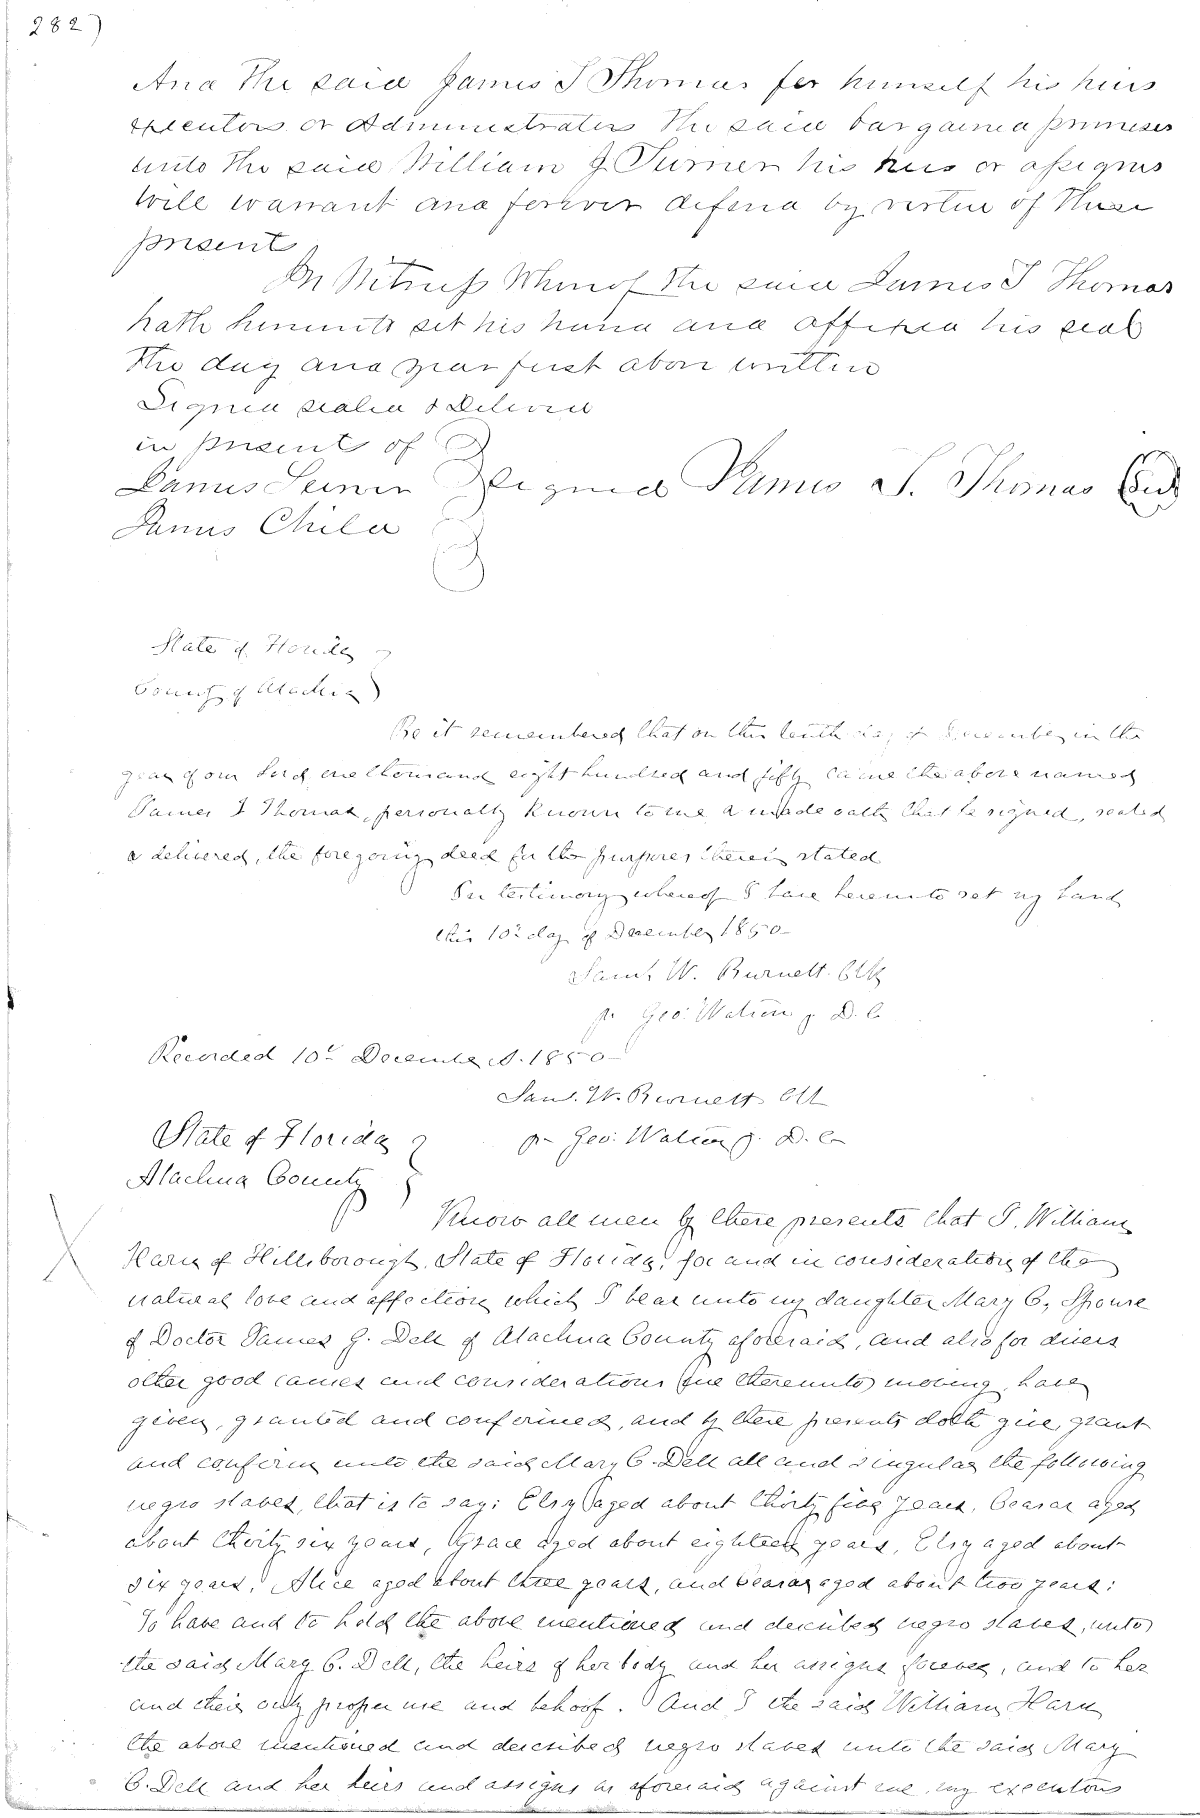 282)
And The said James S Thomas for himself his heirs
executors or Administrators The said bargained premises
unto the said William J Turner his heirs or assigns
will warrant and forever defend by virtue of these
present
In Witness Whereof the said James S Thomas
hath hereunto set his hand and affixed his seal
the day and year first above written
Signed sealed & Delivered
in present of
James Signed James S. Thomas
James Child
State of Florida
County of Alachua
Be it remembered that on this tenth day of December in the
year of our Lord one thousand eight hundred and fifty came the above named
James S Thomas, personally known to me & made oath that he signed, sealed
& delivered, the foregoing deed for the purposes therein stated
In testimony whereof I have hereunto set my hand
this 10th day of December 1850
Saml. W. Burnett. Clk
pr Geo: Watson j. D. C.
Recorded 10th December A. 1850
Sam. W. Burnett Clk
State of Florida pr Geo: Watson j. D. C.
Alachua County
Know all men by these presents that I, William
Harn of Hillsborough, State of Florida, for and in consideration of the
natural love and affection which I bear unto my daughter Mary C, Spouse
of Doctor James G. Dell of Alachua County aforesaid, and also for divers
other good causes and considerations me thereunto moving, have
given, granted and confirmed, and by these presents doth give, grant
and confirm unto the said Mary C. Dell all and singular the following
negro slaves, that is to say: Elsy aged about thirty five years, Ceasar aged
about thirty six years, Grace aged about eighteen years, Elsy aged about
six years, Alice aged about three years, and Ceasar aged about two years:
To have and to hold the above mentioned and described negro slaves, unto
the said Mary C. Dell, the heirs of her body and her assigns forever, and to her
and their only proper use and behoof. And I the said William Harn
the above mentioned and described negro slaves unto the said Mary
C. Dell and her heirs and assigns as aforesaid against me, my executors